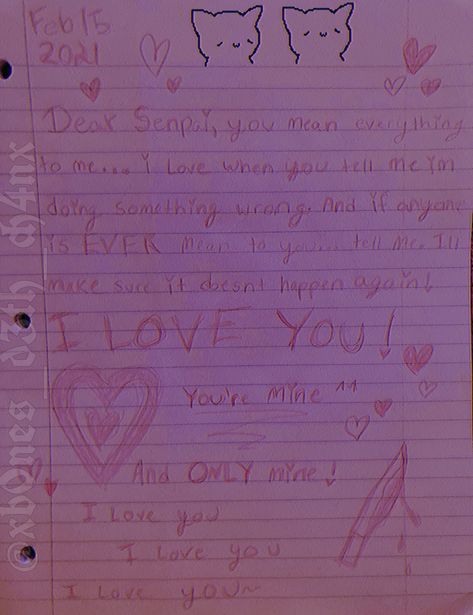 Feb 15
2021
Dear Senpai, you mean everything
to me.... i Love when you tell me im
doing something wrong. And if anyone
is EVER mean to you.... tell me. Ill
make sure it doesnt happen again!
I LOVE YOU!
You're mine ^^
And ONLY mine!
I Love you
I Love you
I Love you~
@xb0nes_d3th_ch4nx